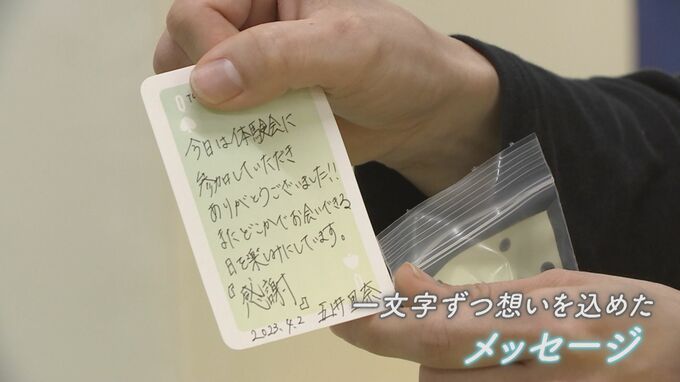 Q
今日は体験会に
参加していただき
ありがとうございました!!
またどこかでお会いできる
日を楽しみにしています。
『感謝』
2023.4.2
一文字ずつ想いを込めた
メッセージ